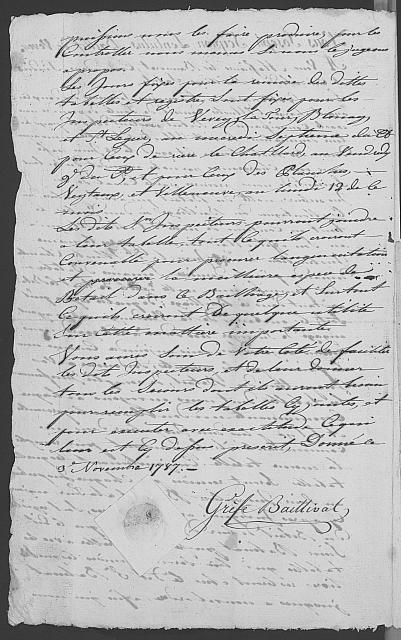 puissions nous les faire produire, pour les
Controller nous mêmes si nous le jugeons
apropos.
Les Jours fixés pour la remise des dittes
tabelles et registre, sont fixés pour les
Inspecteurs de Vevey, La Tour, Blonay,
et St Legier, au mercredi Septieme du Ct
pour ceux de riere le Chatelard, au Vendredy
9e du Ct, et pour ceux des Planches,
Veytaux, et Villeneuve, au lundi 12 de ce
mois.
Les dits Nrs Inspecteurs pourront joindre
a leur tabelle, tout ce qu'ils croiront
Convenable pour procurer l'augmentation
et la meilleure espece de
Betail dans ce Bailliage, et surtout
ce qu'ils croiront de quelque utilité
Sur cette matiere importante.
Vous aurés soin de Votre Coté de faciliter
les dits Inspecteurs, et de leur donner
tous les dont ils auront besoin
pour remplir les tabelles Cy jointes, et
pour executer avec exactitude Ce qui
leur est Cy dessus present, Donné ce
3e Novembre 1787.
Greffe Baillival,